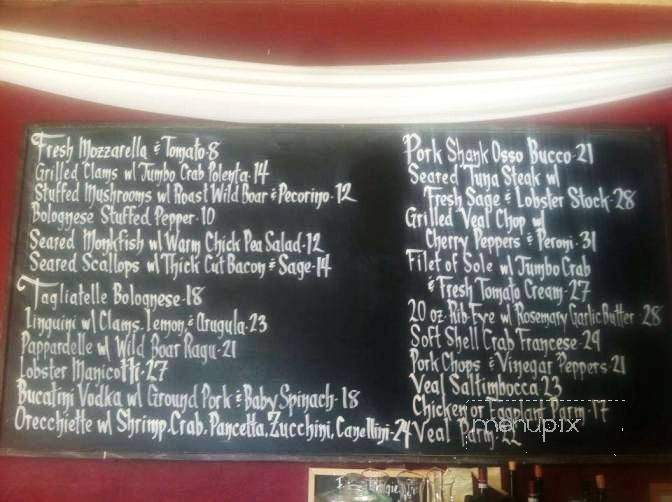 Fresh Mozzarella & Tomato·8
Grilled Clams w/ Jumbo Crab Polenta·14
Stuffed Mushrooms w/ Roast Wild Boar & Pecorino·12
Bolognese Stuffed Pepper·10
Seared Monkfish w/ Warm Chick Pea Salad·12
Seared Scallops w/ Thick Cut Bacon & Sage·14
Tagliatelle Bolognese·18
Linguini w/ Clams, Lemon, & Arugula·23
Pappardelle w/ Wild Boar Ragu·21
Lobster Manicotti·27
Bucatini Vodka w/ Ground Pork & Baby Spinach·18
Orecchiette w/ Shrimp, Crab, Pancetta, Zucchini, Canellini·24
Pork Shank Osso Bucco·21
Seared Tuna Steak w/
Fresh Sage & Lobster Stock·28
Grilled Veal Chop w/
Cherry Peppers & Peroni·31
Filet of Sole w/ Jumbo Crab
& Fresh Tomato Cream·27
20 oz. Rib Eye w/ Rosemary Garlic Butter·28
Soft Shell Crab Francese·29
Pork Chops & Vinegar Peppers·21
Veal Saltimbocca·23
Chicken or Eggplant Parm·17
Veal Parm·22
menupix